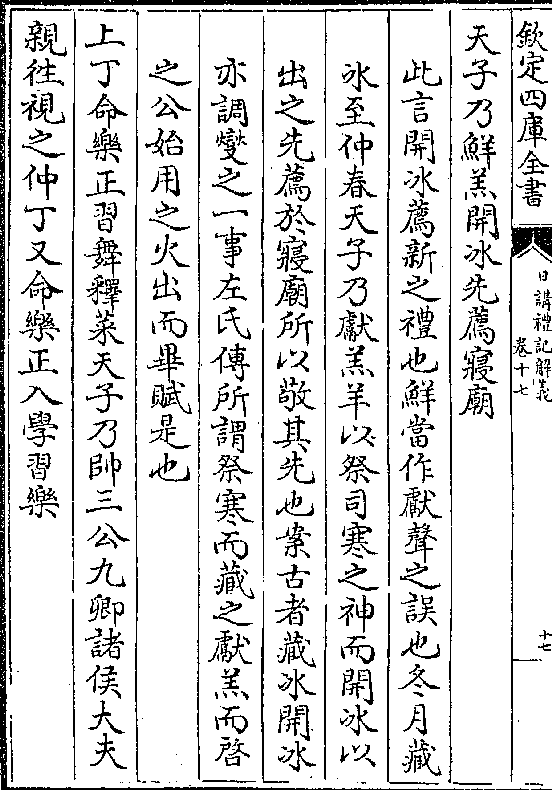 欽定四庫全書
日講禮記解義
卷十七
十七
天子乃鮮羔開冰先薦寢廟
此言開冰薦新之禮也鮮當作獻聲之誤也冬月藏
冰至仲春天子乃獻羔羊以祭司寒之神而開冰以
出之先薦於寢廟所以敬其先也案古者藏冰開冰
亦調燮之一事左氏傳所謂祭寒而藏之獻羔而啓
之公始用之火出而畢賦是也
上丁命樂正習舞釋菜天子乃帥三公九卿諸侯大夫
親徃視之仲丁又命樂正入學習樂